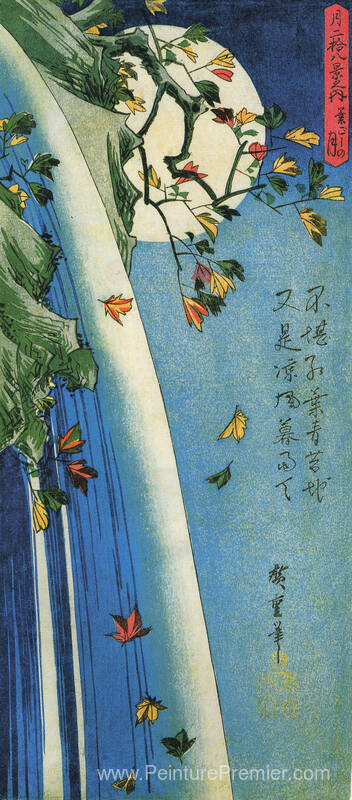 月二拾八景之内
葉ごしの
月
不堪紅葉青苔地
又是凉風暮雨天
廣重筆
www.PeinturePremier.com